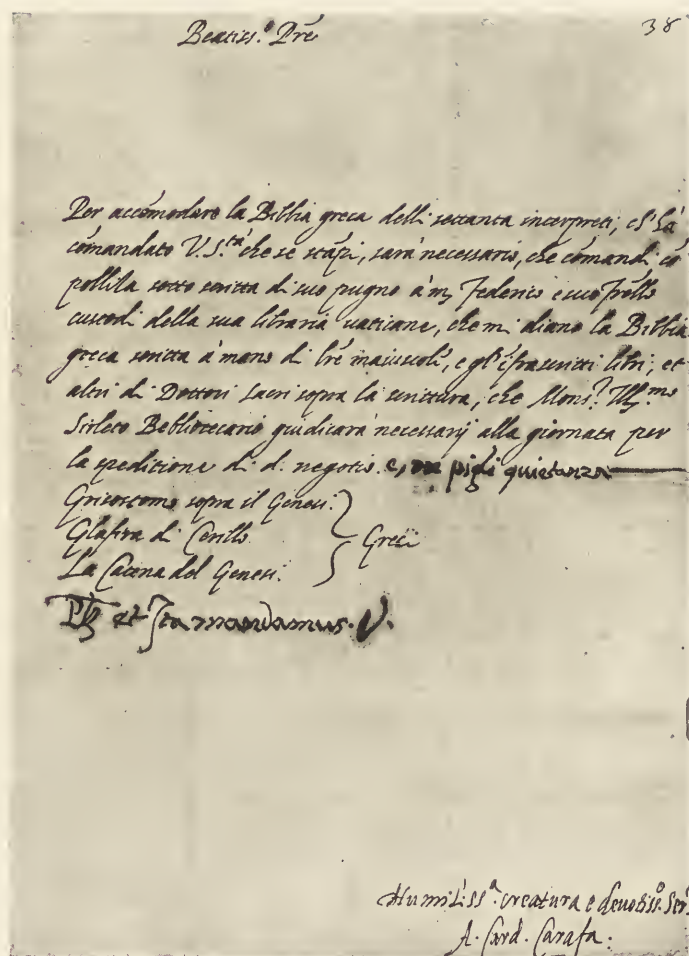 Beatiss.º Pre
38
Per accómodare la Bibbia greca delli settanta interpreti, ch'há
cómandato V. S.tà che se stápi, sará necessario, che cómandi có
pollila sotto scritta di suo pugno á m Federico e suo frello
custodi della sua libraria vaticana, che mi diano la Bibbia
greca scritta á mano di lre maiuscoli, e gl' ífrascritti libri, et
altri di Dottori sacri sopra la scrittura, che Mons.r Ill.mo
Sirleto Bebliotecario giudicará necessarij alla giornata per
la speditione di d. negotio. e, ne pigli quietanza
Grisostomo sopra il Genesi.
Glafira di Cirillo Greci
La Catena del Genesi.
et Ita mandamus. V.
Humiliss.a creatura e devotiss.o Ser
A. Card. Carafa.